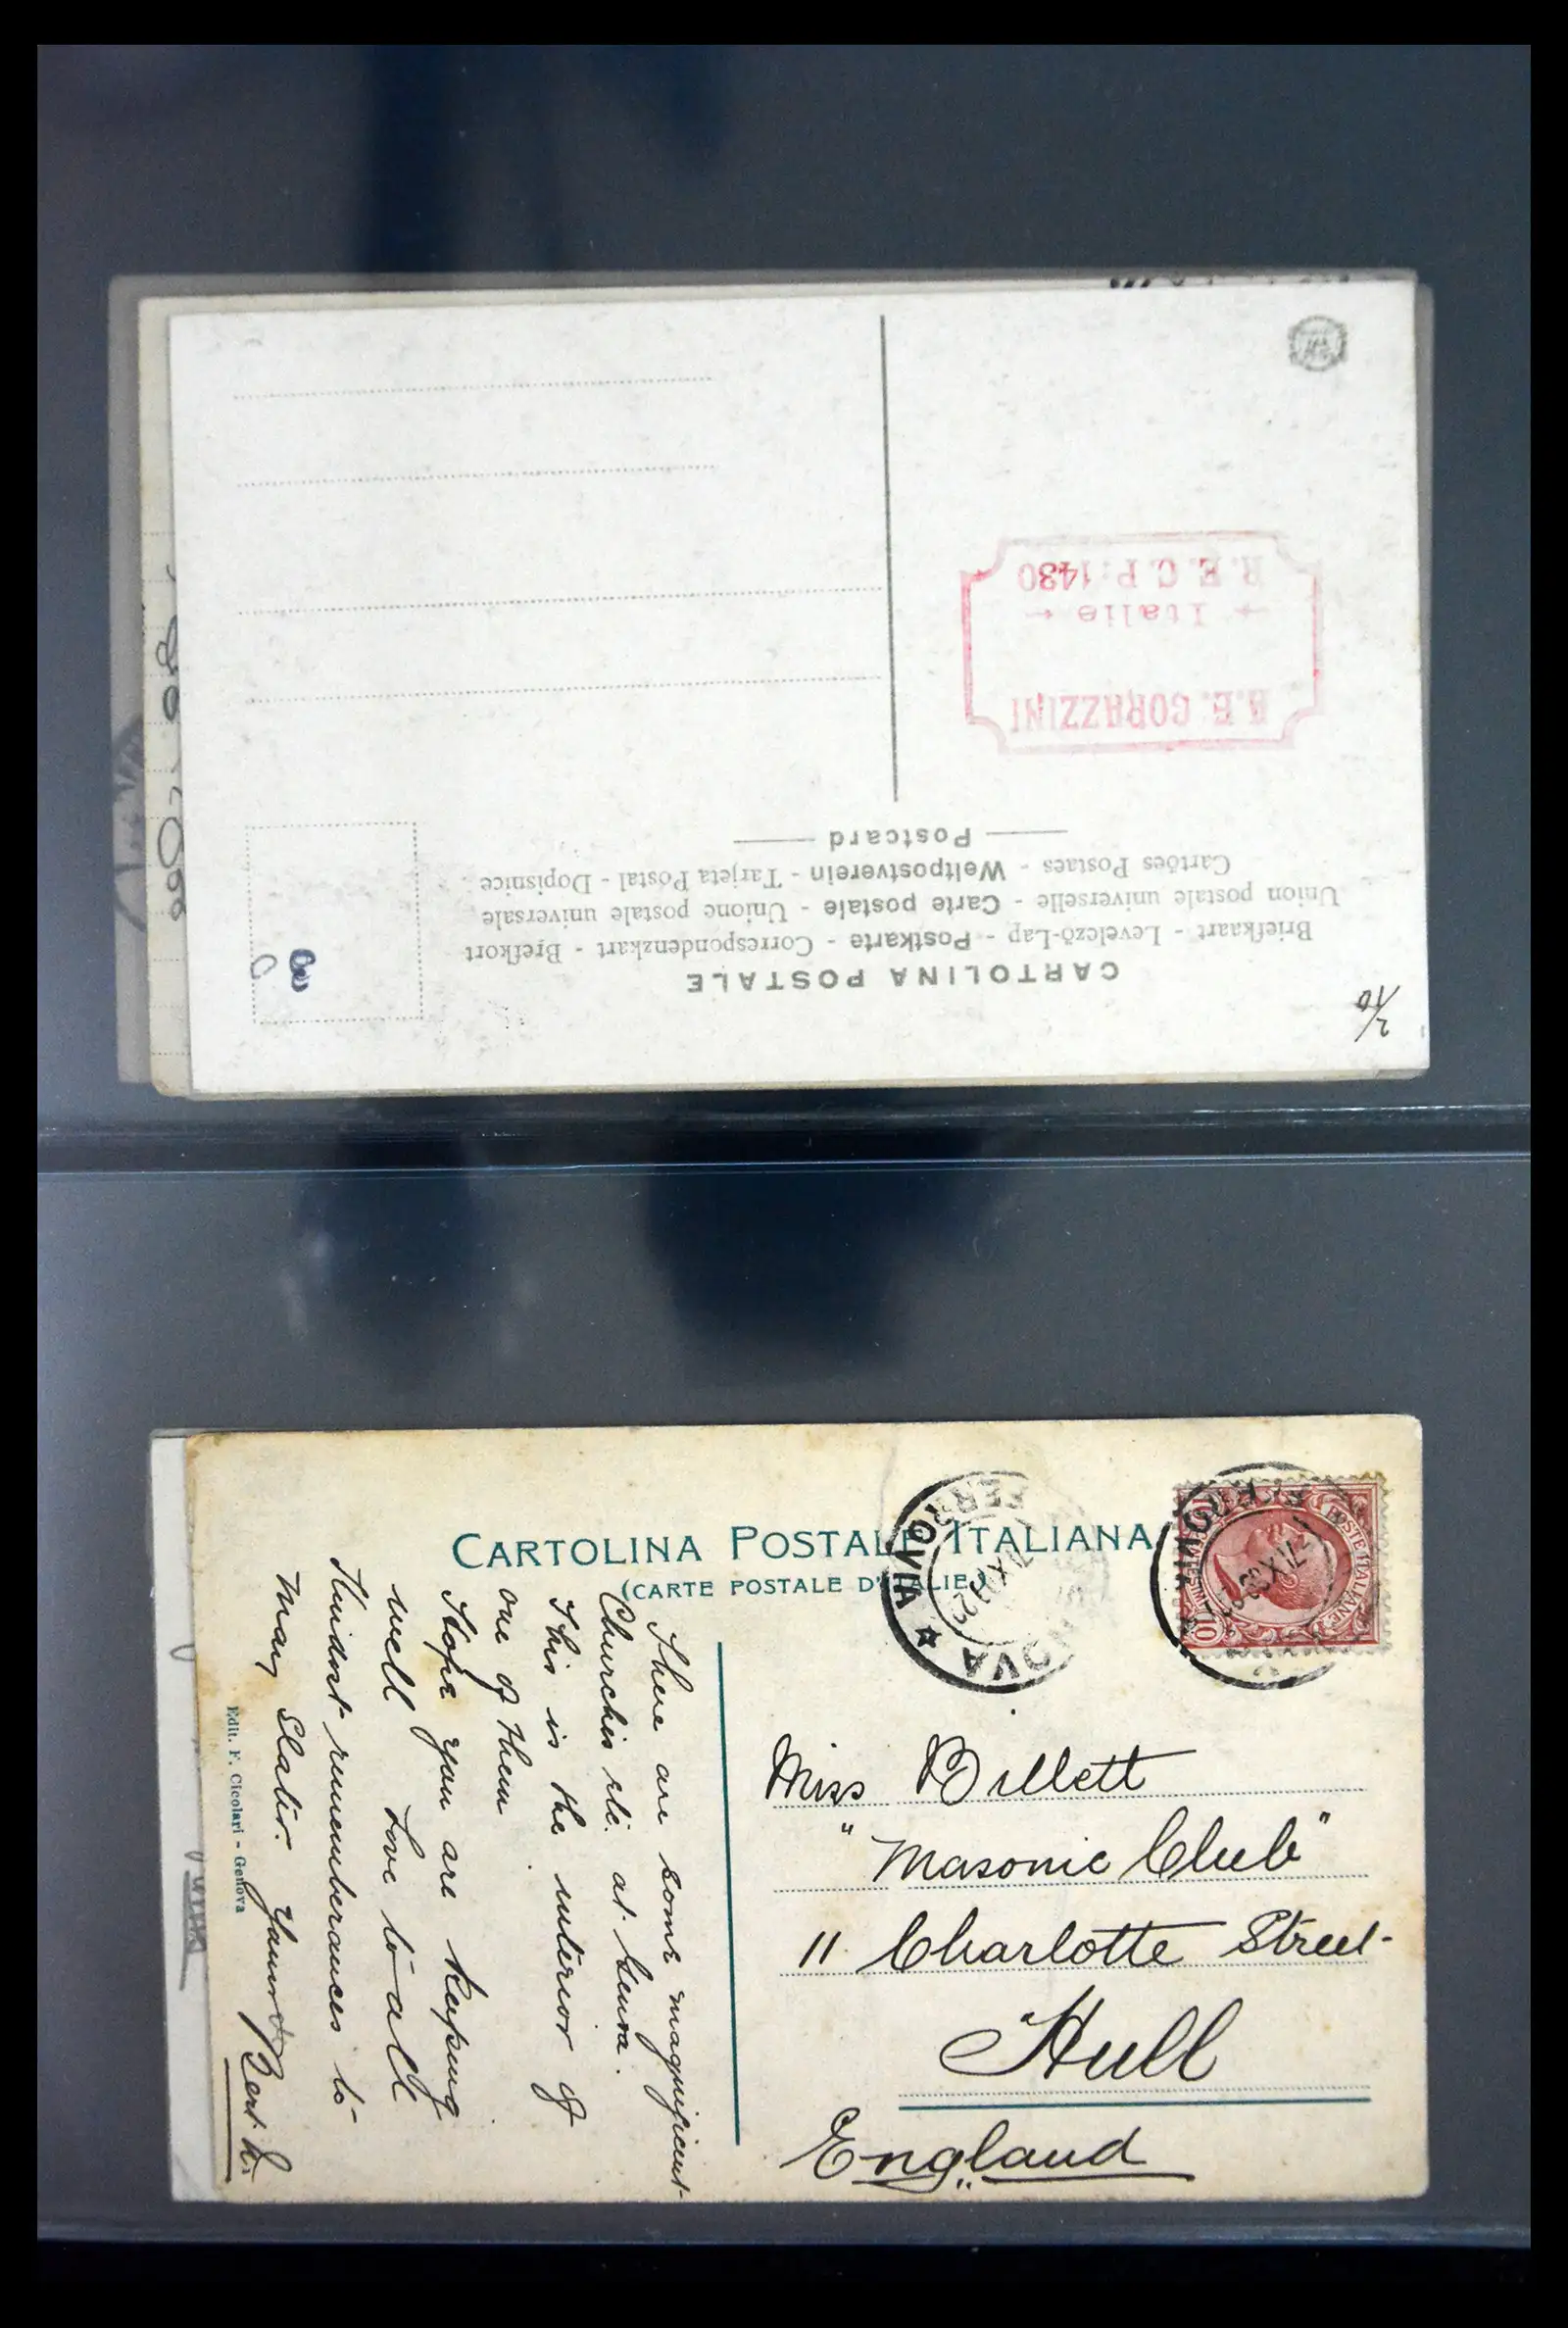 CARTOLINA POSTALE
Briefkaart - Levelező-Lap - Postkarte - Correspondenzkart - Brefkort
Union postale universelle - Carte postale - Unione postale universale
Cartões Postaes - Weltpostverein - Tarjeta Postal - Dopisnice
Postcard
B.E. CORAZZINI
Italie
R.E.C.P: 1430
CARTOLINA POSTALE ITALIANA
(CARTE POSTALE D'ITALIE)
FERROVIA
POSTE ITALIANE
10
There are some magnificent
Churches etc. at Genoa.
This is the interior of
one of them
Hope you are keeping
well Love to all
Kindest rememberances to
May Slater. Yours
Bert L.
Edit. F. Cicolari - Genova
Miss Billett
"Masonic Club"
11 Charlotte Street
Hull
England